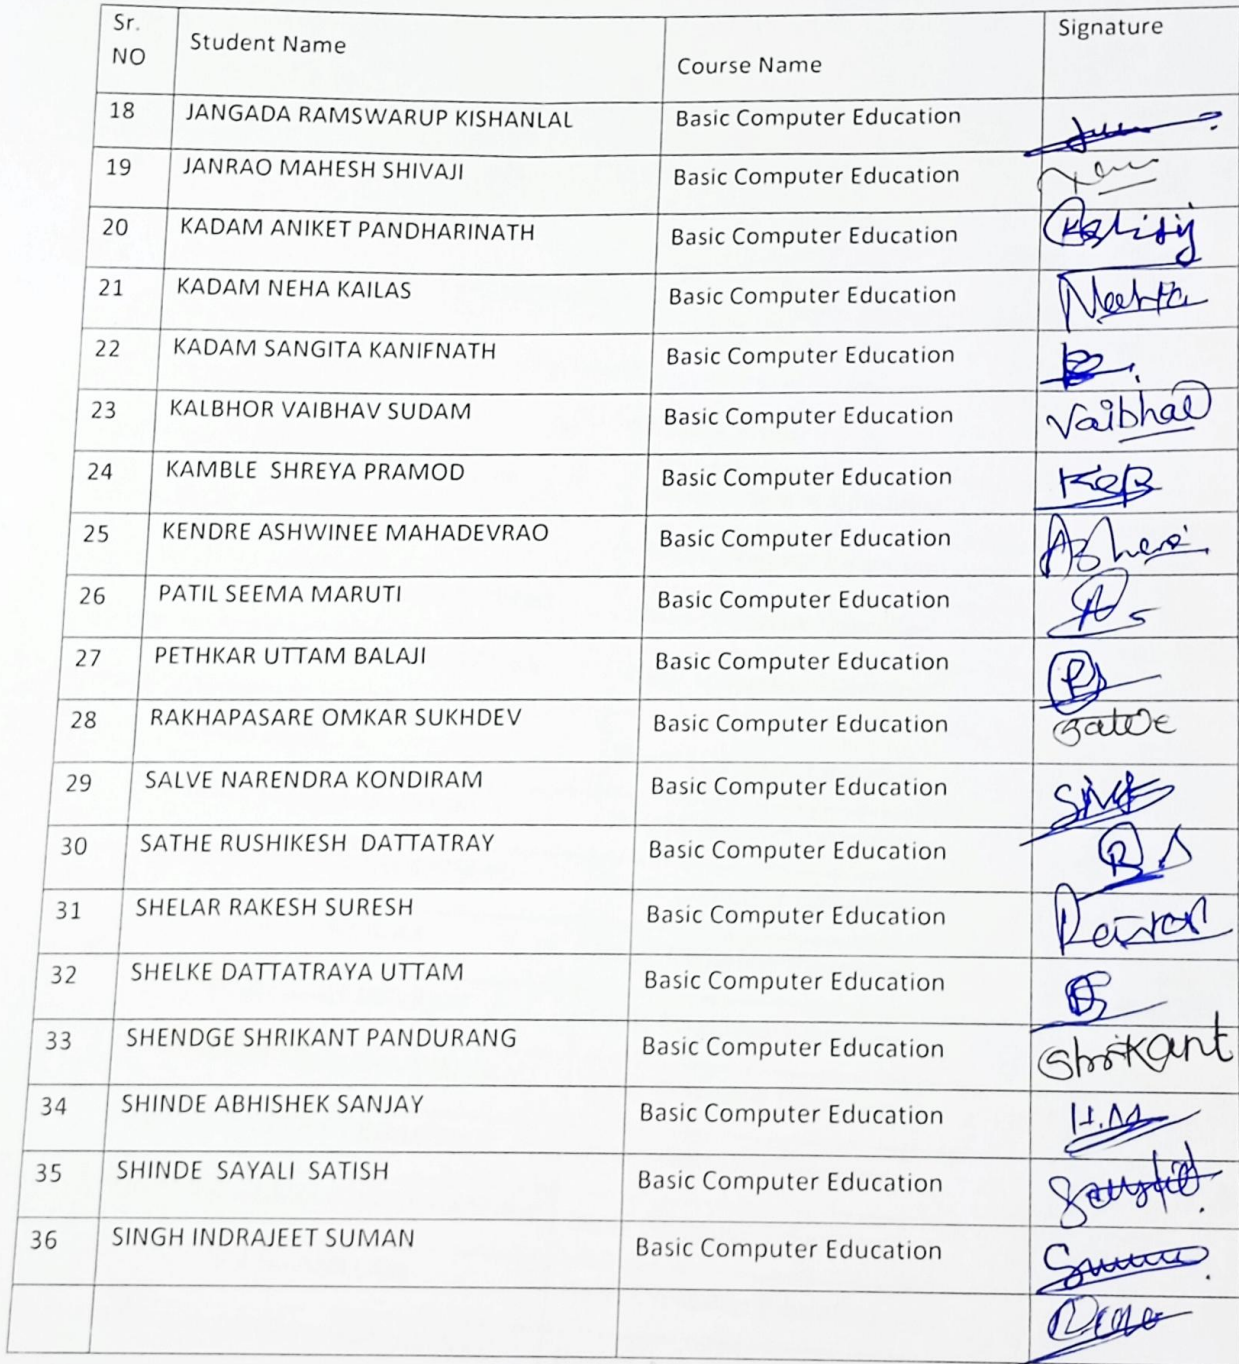 Sr. NO Student Name Course Name Signature
18 JANGADA RAMSWARUP KISHANLAL Basic Computer Education
19 JANRAO MAHESH SHIVAJI Basic Computer Education
20 KADAM ANIKET PANDHARINATH Basic Computer Education
21 KADAM NEHA KAILAS Basic Computer Education
22 KADAM SANGITA KANIFNATH Basic Computer Education
23 KALBHOR VAIBHAV SUDAM Basic Computer Education Vaibhav
24 KAMBLE SHREYA PRAMOD Basic Computer Education
25 KENDRE ASHWINEE MAHADEVRAO Basic Computer Education
26 PATIL SEEMA MARUTI Basic Computer Education
27 PETHKAR UTTAM BALAJI Basic Computer Education
28 RAKHAPASARE OMKAR SUKHDEV Basic Computer Education
29 SALVE NARENDRA KONDIRAM Basic Computer Education
30 SATHE RUSHIKESH DATTATRAY Basic Computer Education
31 SHELAR RAKESH SURESH Basic Computer Education
32 SHELKE DATTATRAYA UTTAM Basic Computer Education
33 SHENDGE SHRIKANT PANDURANG Basic Computer Education Shrikant
34 SHINDE ABHISHEK SANJAY Basic Computer Education
35 SHINDE SAYALI SATISH Basic Computer Education
36 SINGH INDRAJEET SUMAN Basic Computer Education